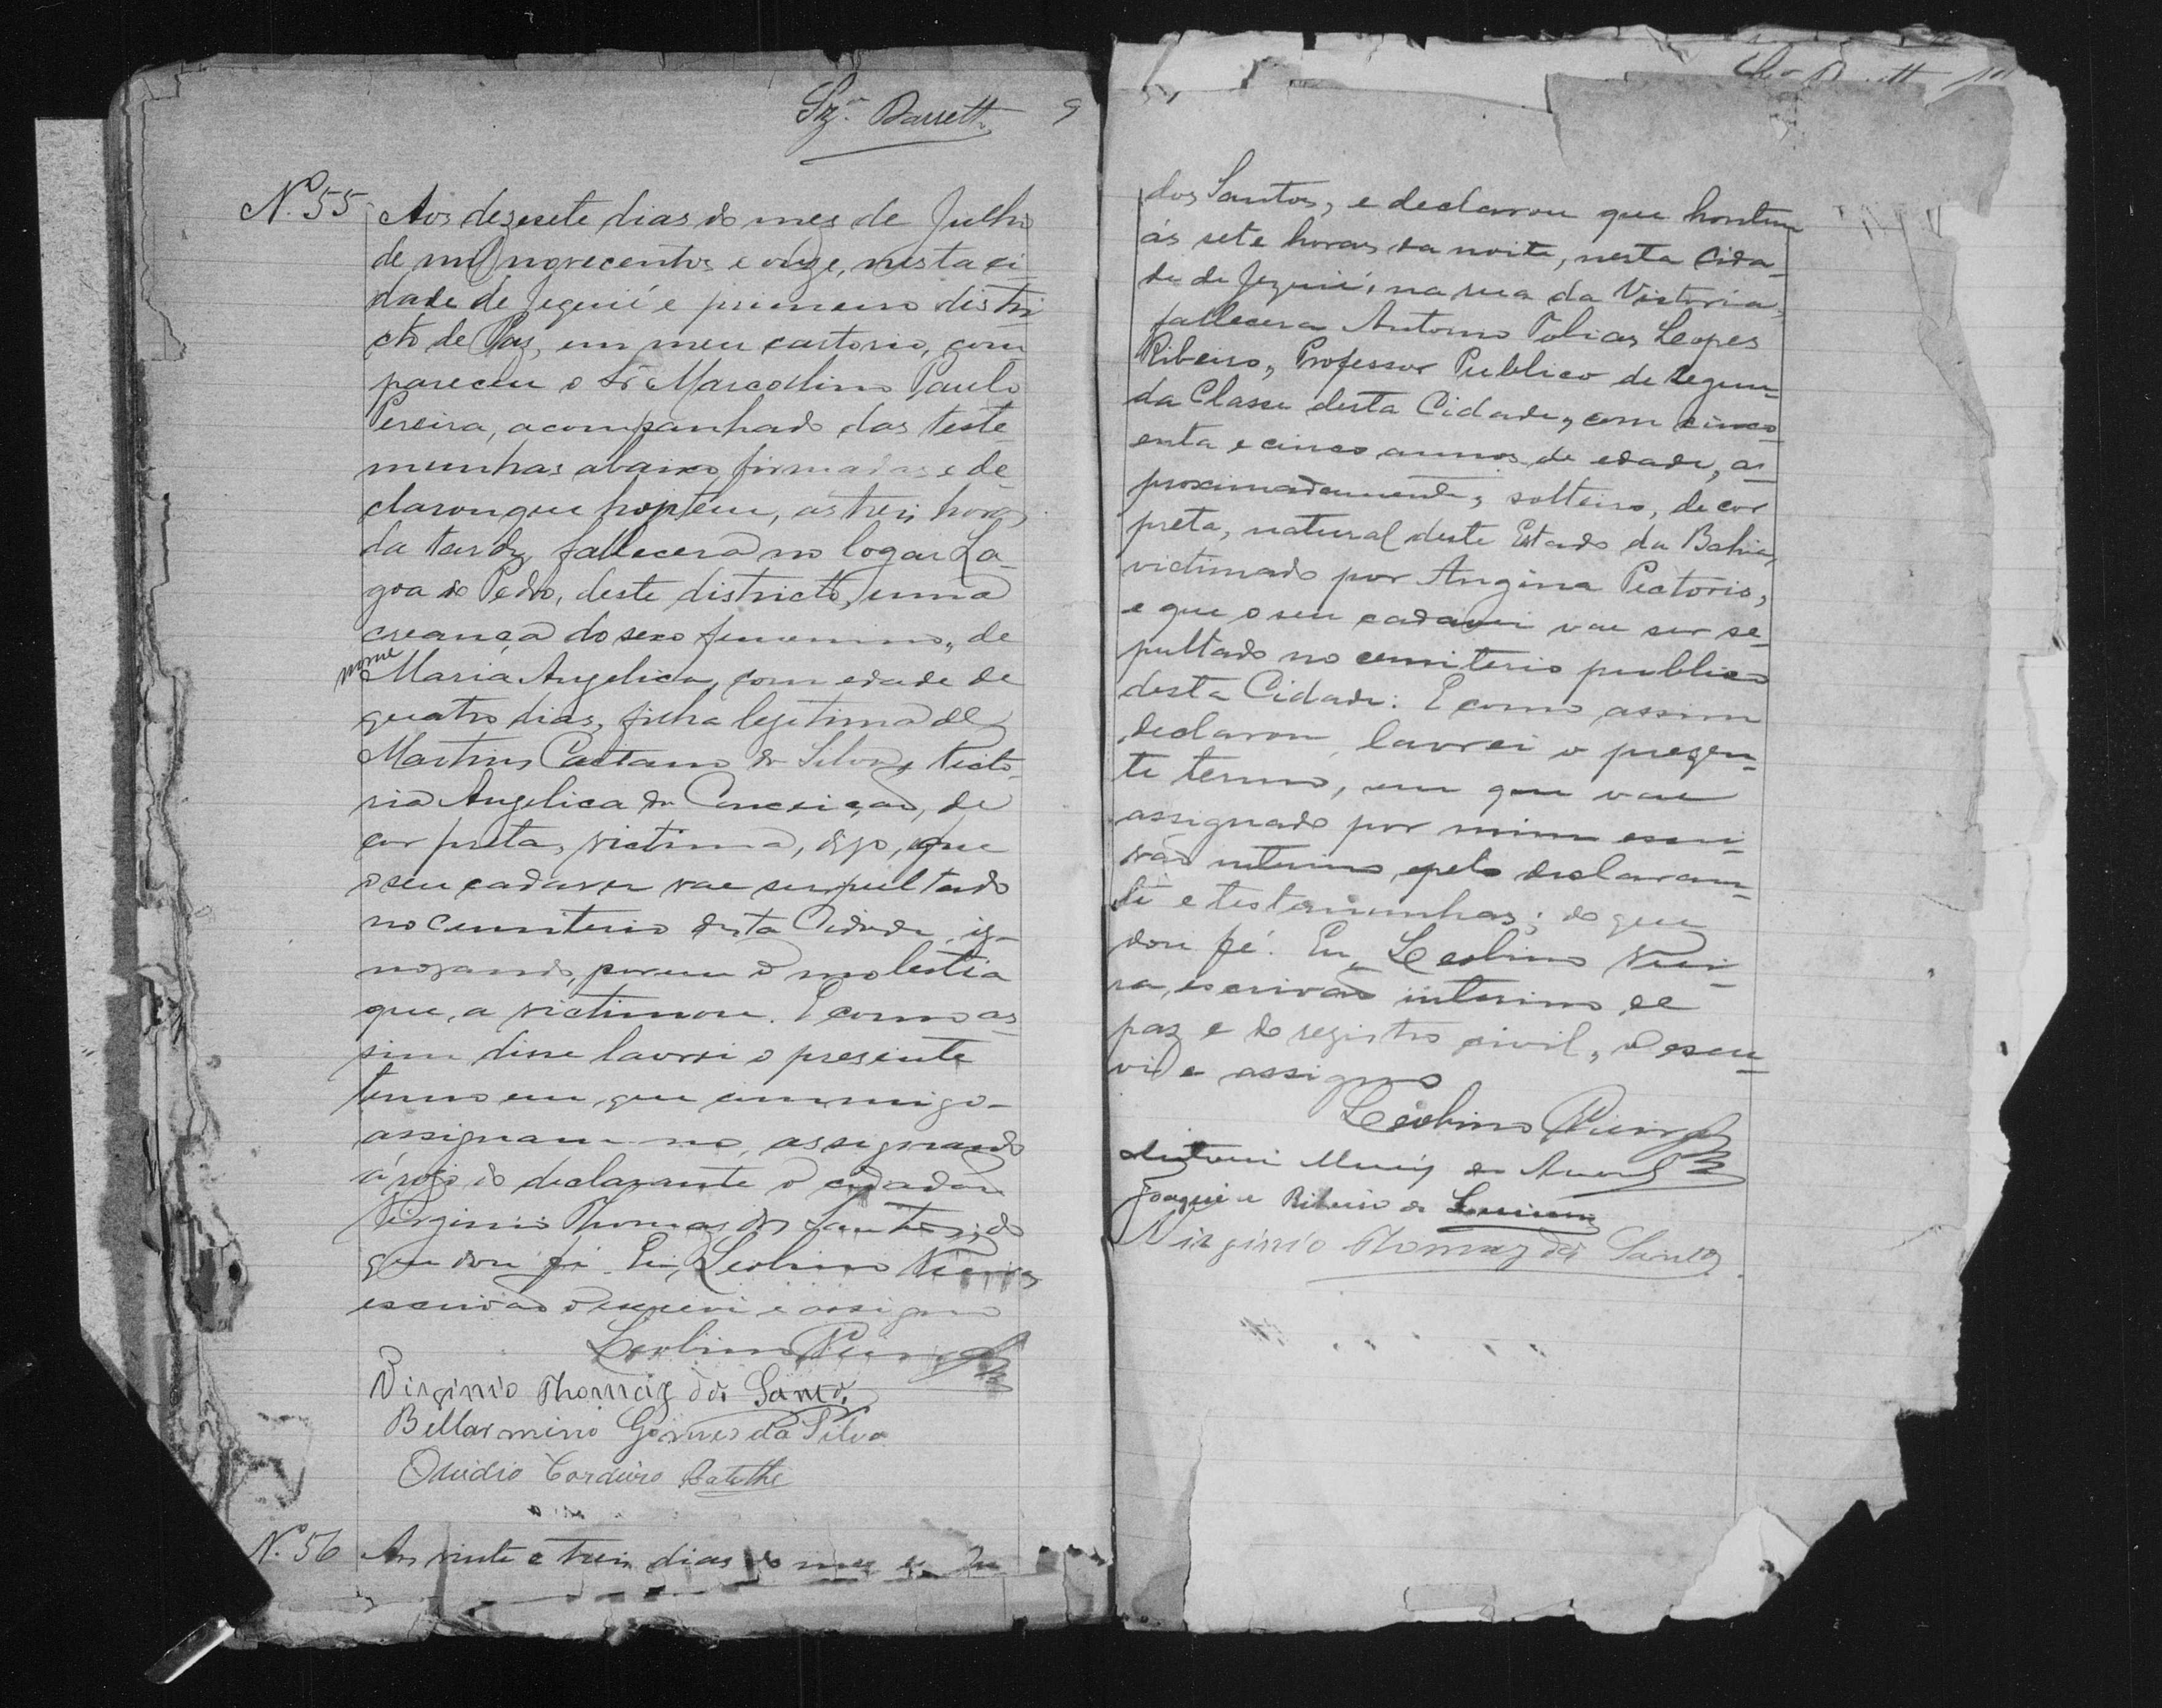 Barrett 9
Nº 55 Aos desesete dias do mes de Julho
de mil novecentos e onze, nesta ci-
dade de Jequié e primeiro distri-
cto de Paz, em meu cartorio, com
pareceu o Sr Marcollino Paulo
Pereira, acompanhado das teste-
munhas abaixo firmadas e de-
clarou que hontem, as tres horas
da tarde, fallecera no logar La-
goa do Pedro, deste districto, uma
creança do sexo femenino, de
nome
Maria Angelica, com edade de
quatro dias, filha legitima de
Martins Caetano da Silva e Victo-
ria Angelica da Conceição, de
cor preta, victima, digo, que
o seu cadaver vae ser pultado
no cemiterio desta Cidade, ig-
norando, porem a molestia
que a victimou. E como as-
sim disse lavrei o presente
termo em que commigo
assignam no, assignando
á rogo do declarante o cidadão
Virginio Thomaz dos Santos; do
que dou fé. Eu, Leolino Vieira
escrivão o escrevi e assigno
Leolino Vieira
Virginio Thomaz dos Santos
Bellarmino Gomes da Silva
Ovidio Cordeiro
Nº 56 Aos vinte e tres dias do mes de Ju
dos Santos, e declarou que hontem
ás sete horas da noite, nesta Cida-
de de Jequié, na rua da Victoria,
fallecera Antonio Tobias Lopes
Ribeiro, Professor Publico de segun-
da Classe desta Cidade, com cinco-
enta e cinco annos de edade, a-
proximadamente, solteiro, de cor
preta, natural deste Estado da Bahia,
victimado por Angina Pectoris,
e que o seu cadaver vae ser se-
pultado no cemiterio publico
desta Cidade: E como assim
declarou, lavrei o prezen-
te termo, em que vae
assignado por mim escri-
vão interino, e pelo declaran-
te e testemunhas; do que
dou fé. Eu, Leolino Viei-
ra, escrivão interino de
paz e do registro civil, o escre-
vi e assigno
Leolino Vieira
Antonio Muniz de
Joaquim Ribeiro de
Virginio Thomaz dos Santos